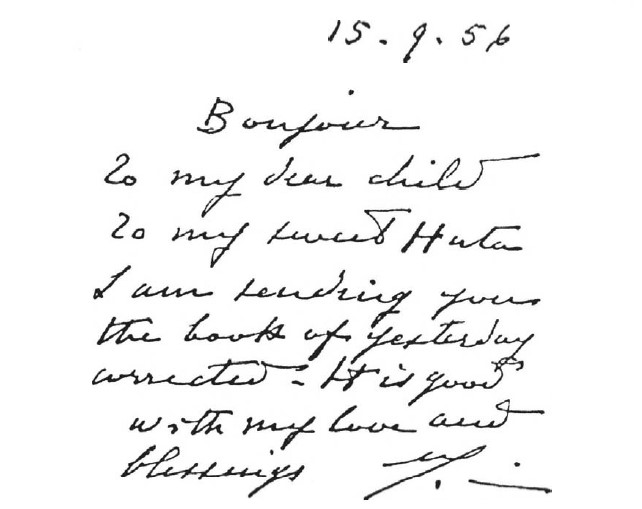 15.9.56
Bonjour
To my dear child
To my sweet Huta
I am sending you
the book of yesterday
corrected - It is good
with my love and
blessings